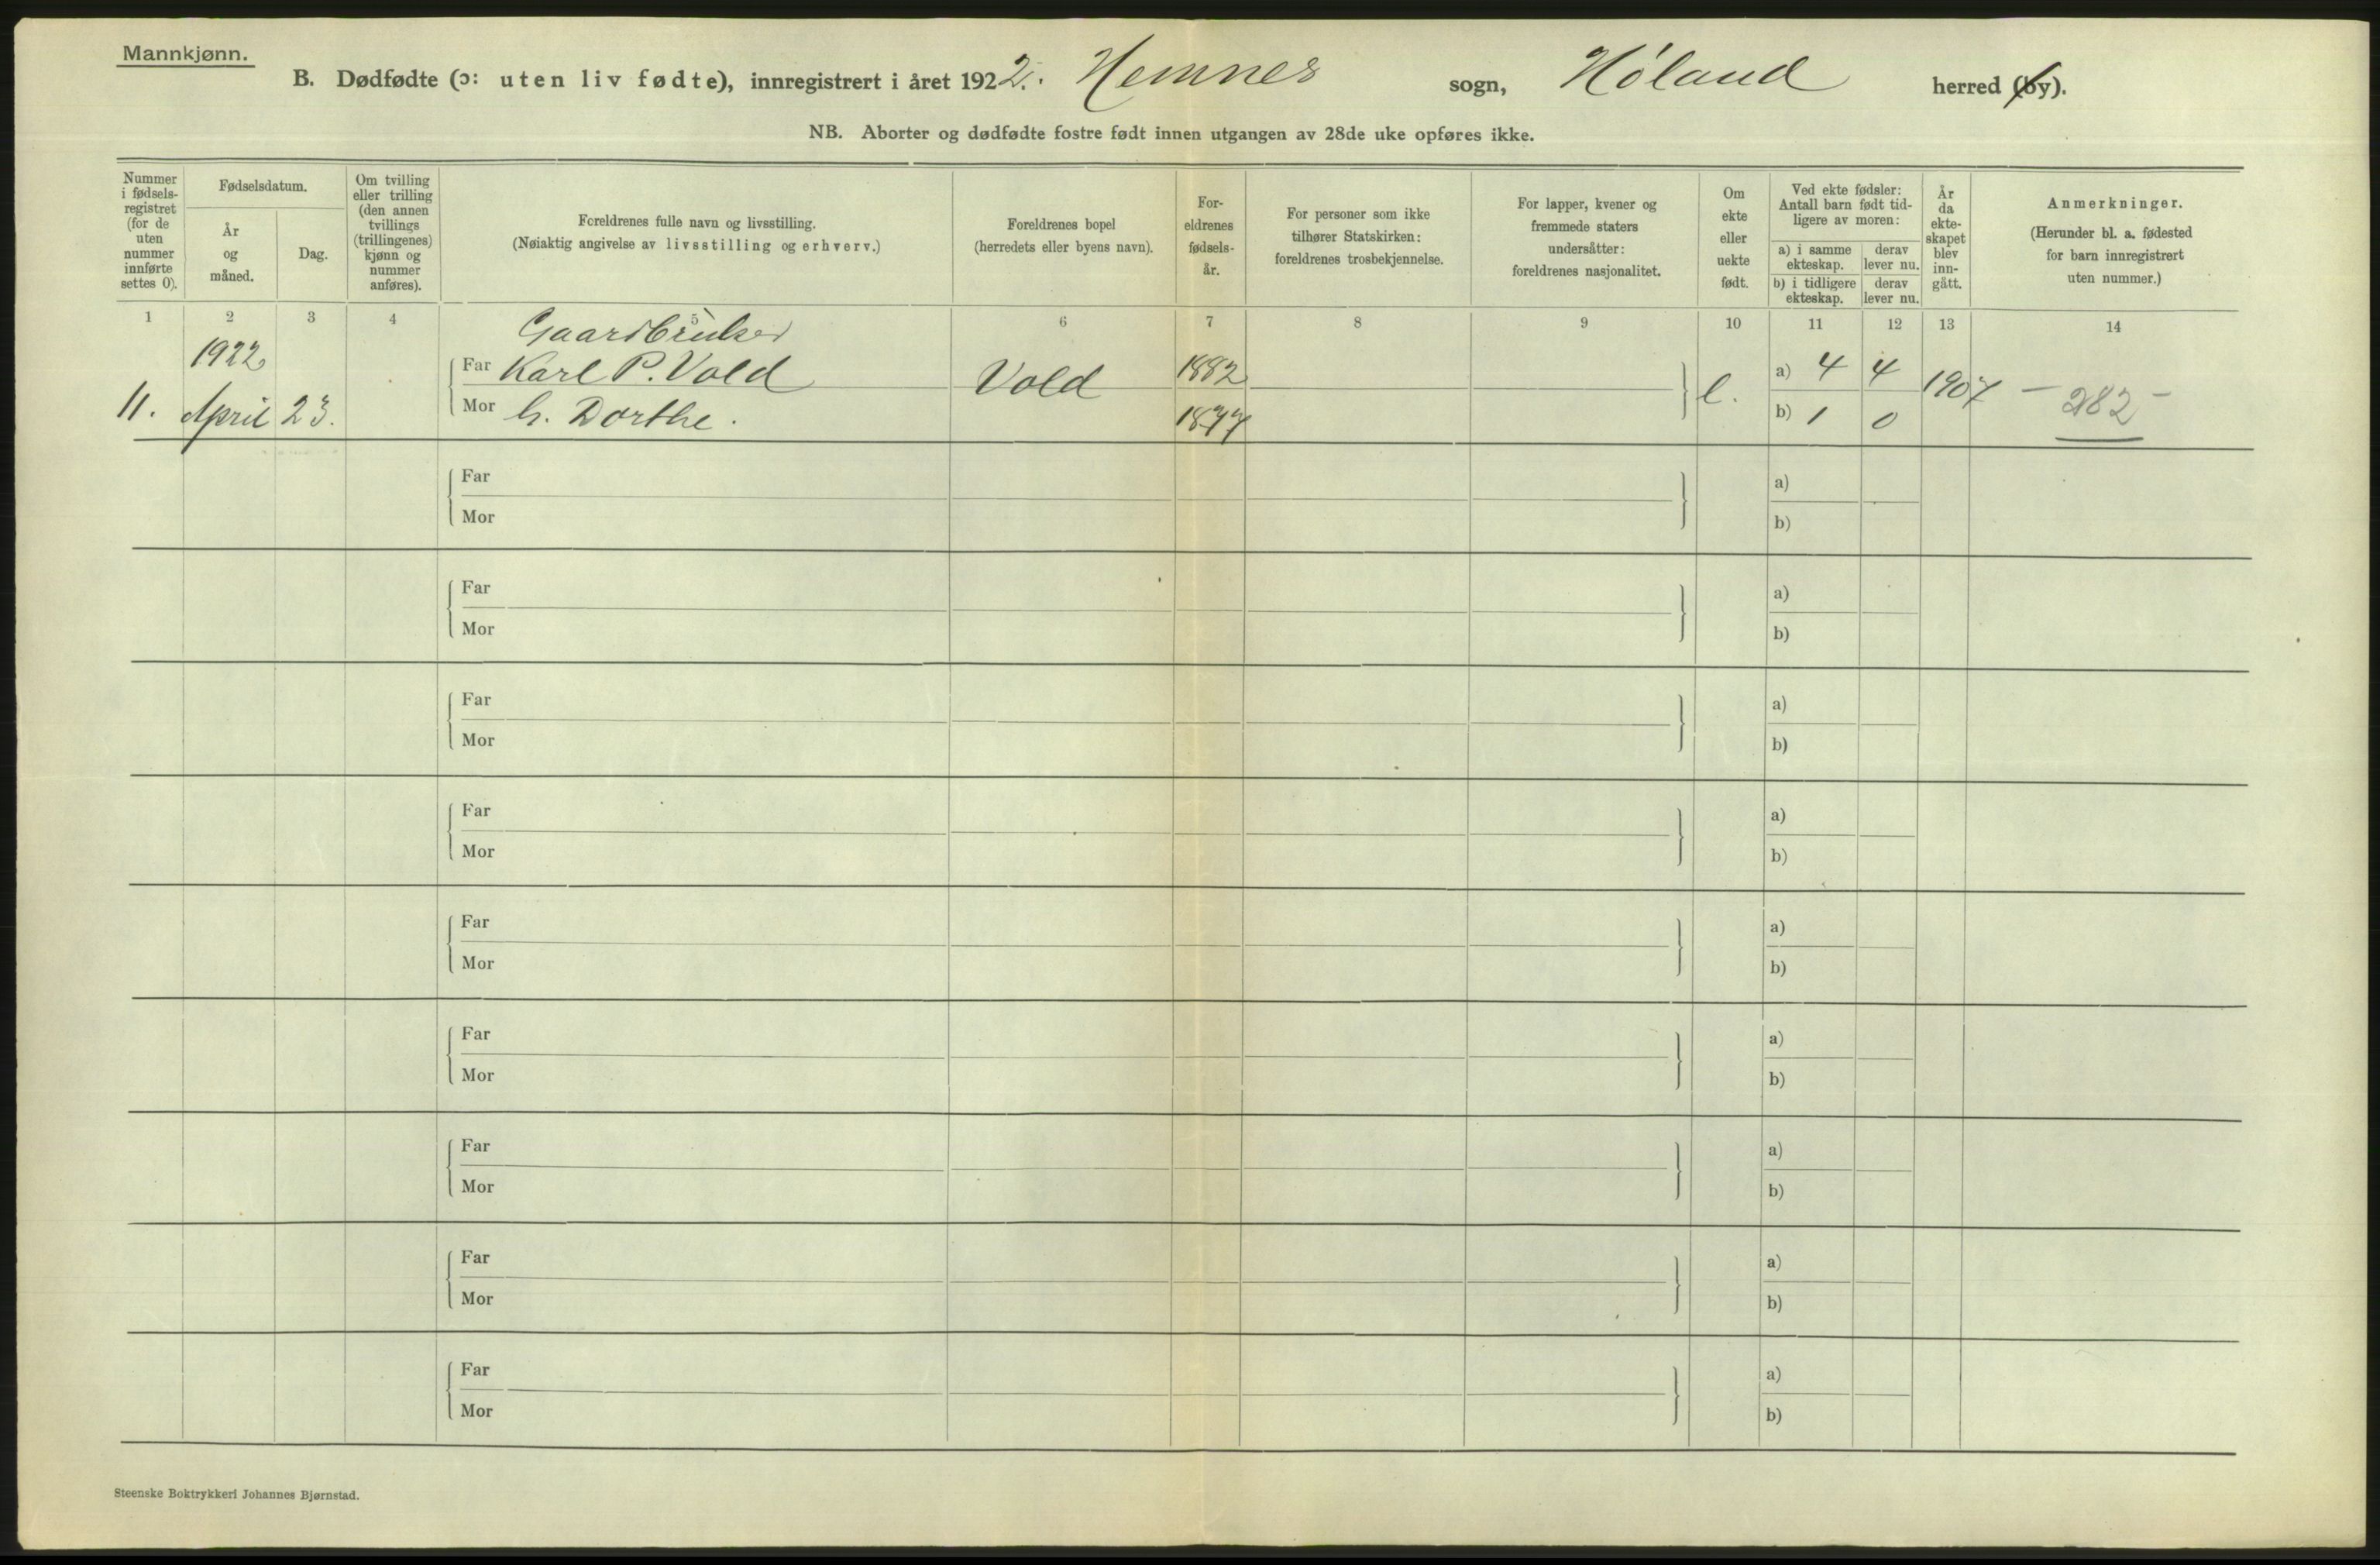 Mannkjønn.
B. Dødfødte (ɔ: uten liv fødte), innregistrert i året 1922. Hemnes sogn, Høland herred (by).
NB. Aborter og dødfødte fostre født innen utgangen av 28de uke opføres ikke.
Nummer i fødsels-registret (for de uten nummer innførte settes 0).
Fødselsdatum.
År og måned.
Dag.
Om tvilling eller trilling (den annen tvillings (trillingenes) kjønn og nummer anføres).
Foreldrenes fulle navn og livsstilling.
(Nøiaktig angivelse av livsstilling og erhverv.)
Foreldrenes bopel
(herredets eller byens navn).
For-eldrenes fødsels-år.
For personer som ikke tilhører Statskirken: foreldrenes trosbekjennelse.
For lapper, kvener og fremmede staters undersåtter: foreldrenes nasjonalitet.
Om ekte eller uekte født.
Ved ekte fødsler: Antall barn født tid-ligere av moren:
a) i samme ekteskap.
derav lever nu.
b) i tidligere ekteskap.
derav lever nu.
År da ekte-skapet blev inn-gått.
Anmerkninger.
(Herunder bl. a. fødested for barn innregistrert uten nummer.)
1 2 3 4 5 6 7 8 9 10 11 12 13 14
Gaardbruker
1922
Far Karl P. Vold Vold 1882 a) 4 4
11. April 23. Mor h. Dorthe. 1877 e. b) 1 0 1907 - 282 -
Far a)
Mor b)
Far a)
Mor b)
Far a)
Mor b)
Far a)
Mor b)
Far a)
Mor b)
Far a)
Mor b)
Far a)
Mor b)
Far a)
Mor b)
Far a)
Mor b)
Steenske Boktrykkeri Johannes Bjørnstad.